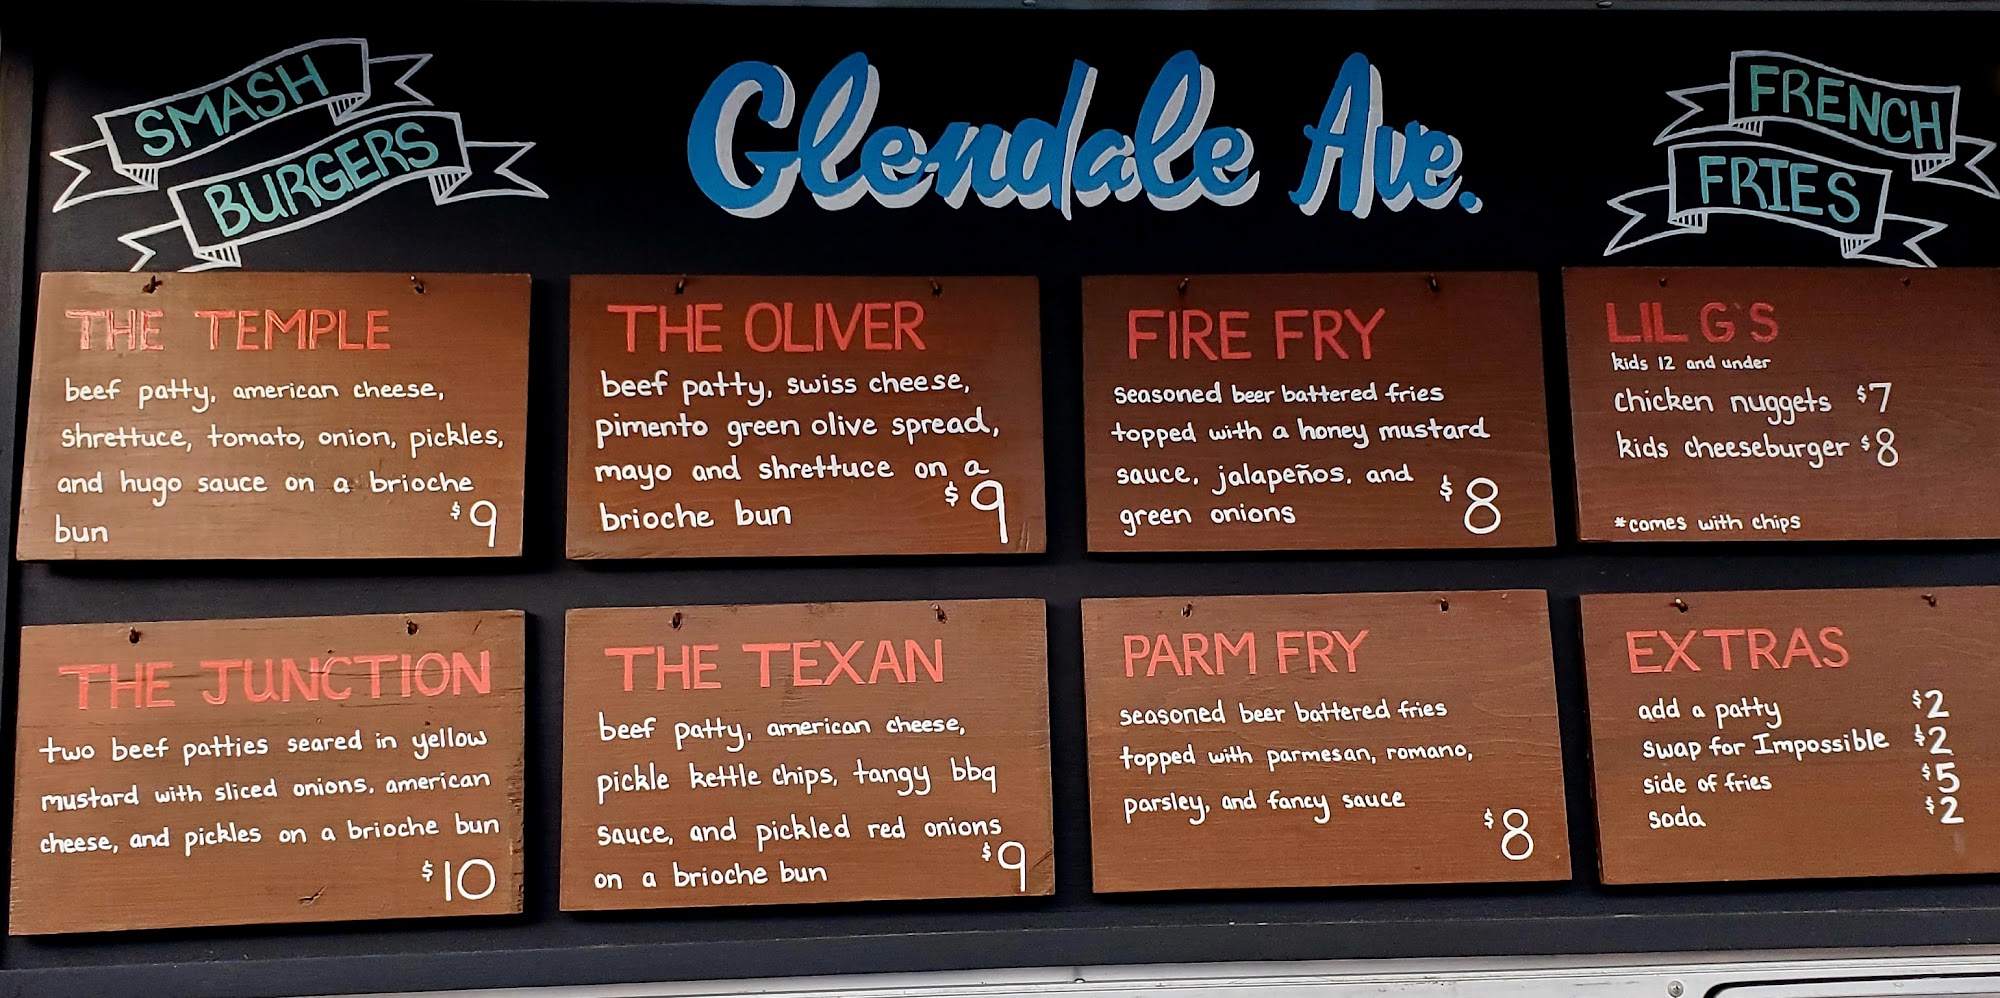 SMASH
BURGERS
Glendale Ave.
FRENCH
FRIES
THE TEMPLE
beef patty, american cheese,
shrettuce, tomato, onion, pickles,
and hugo sauce on a brioche
bun
$9
THE OLIVER
beef patty, swiss cheese,
pimento green olive spread,
mayo and shrettuce on a
brioche bun
$9
FIRE FRY
seasoned beer battered fries
topped with a honey mustard
sauce, jalapeños, and
green onions
$8
LIL G'S
kids 12 and under
chicken nuggets $7
kids cheeseburger $8
*comes with chips
THE JUNCTION
two beef patties seared in yellow
mustard with sliced onions, american
cheese, and pickles on a brioche bun
$10
THE TEXAN
beef patty, american cheese,
pickle kettle chips, tangy bbq
sauce, and pickled red onions
on a brioche bun
$9
PARM FRY
seasoned beer battered fries
topped with parmesan, romano,
parsley, and fancy sauce
$8
EXTRAS
add a patty $2
swap for Impossible $2
side of fries $5
soda $2